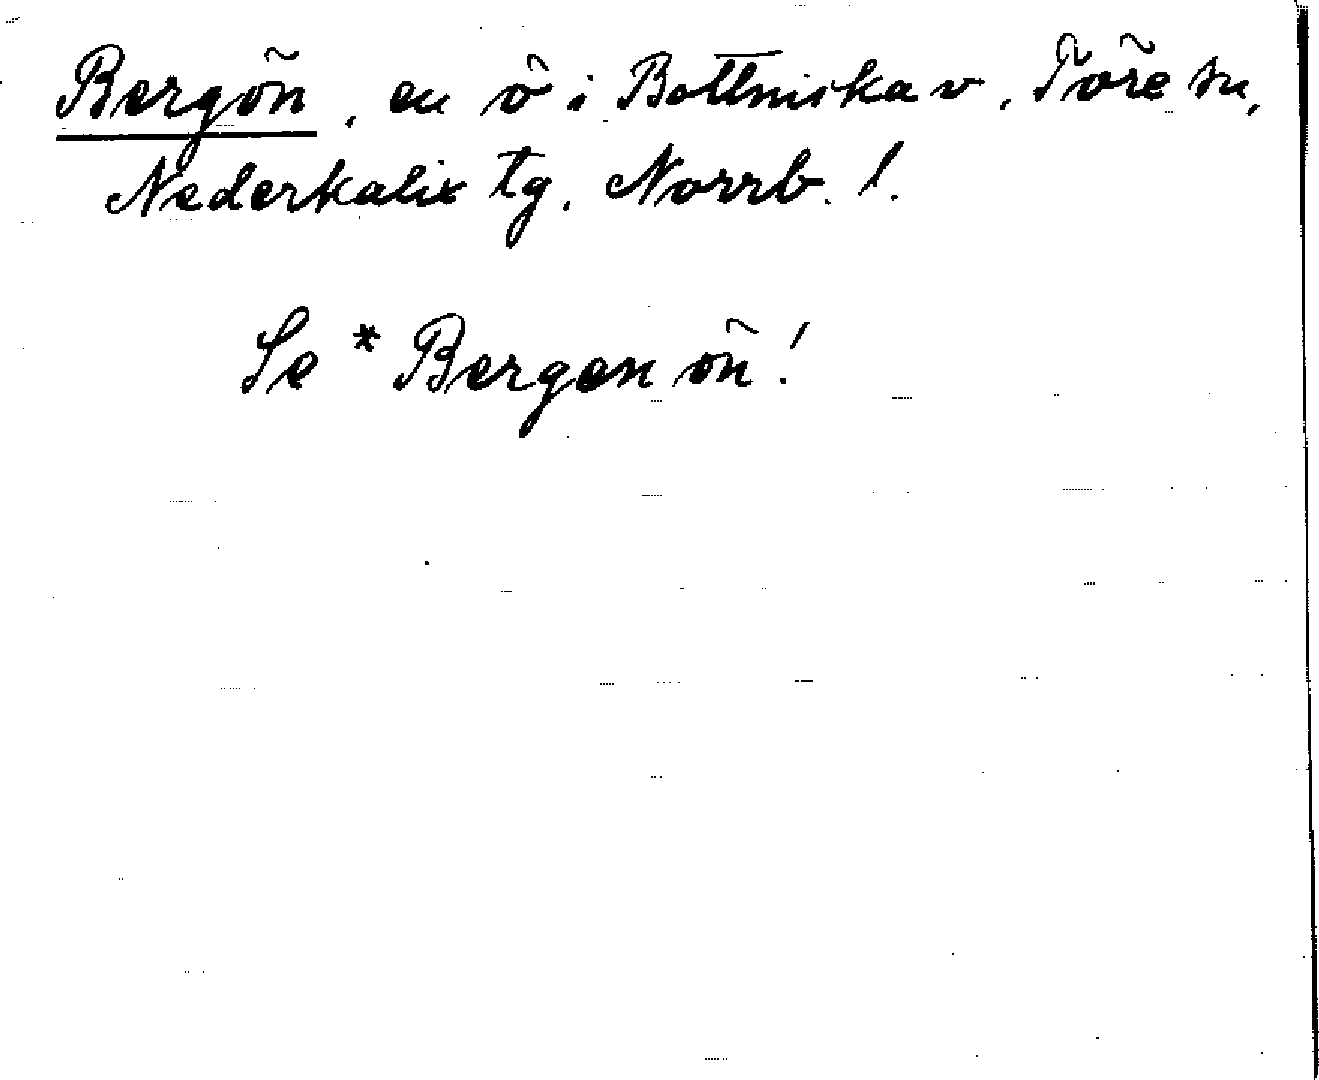 Bergön, en ö i Bottniska v, Töre sn,
Nederkalix tg, Norrb. l.
Se * Bergenön!